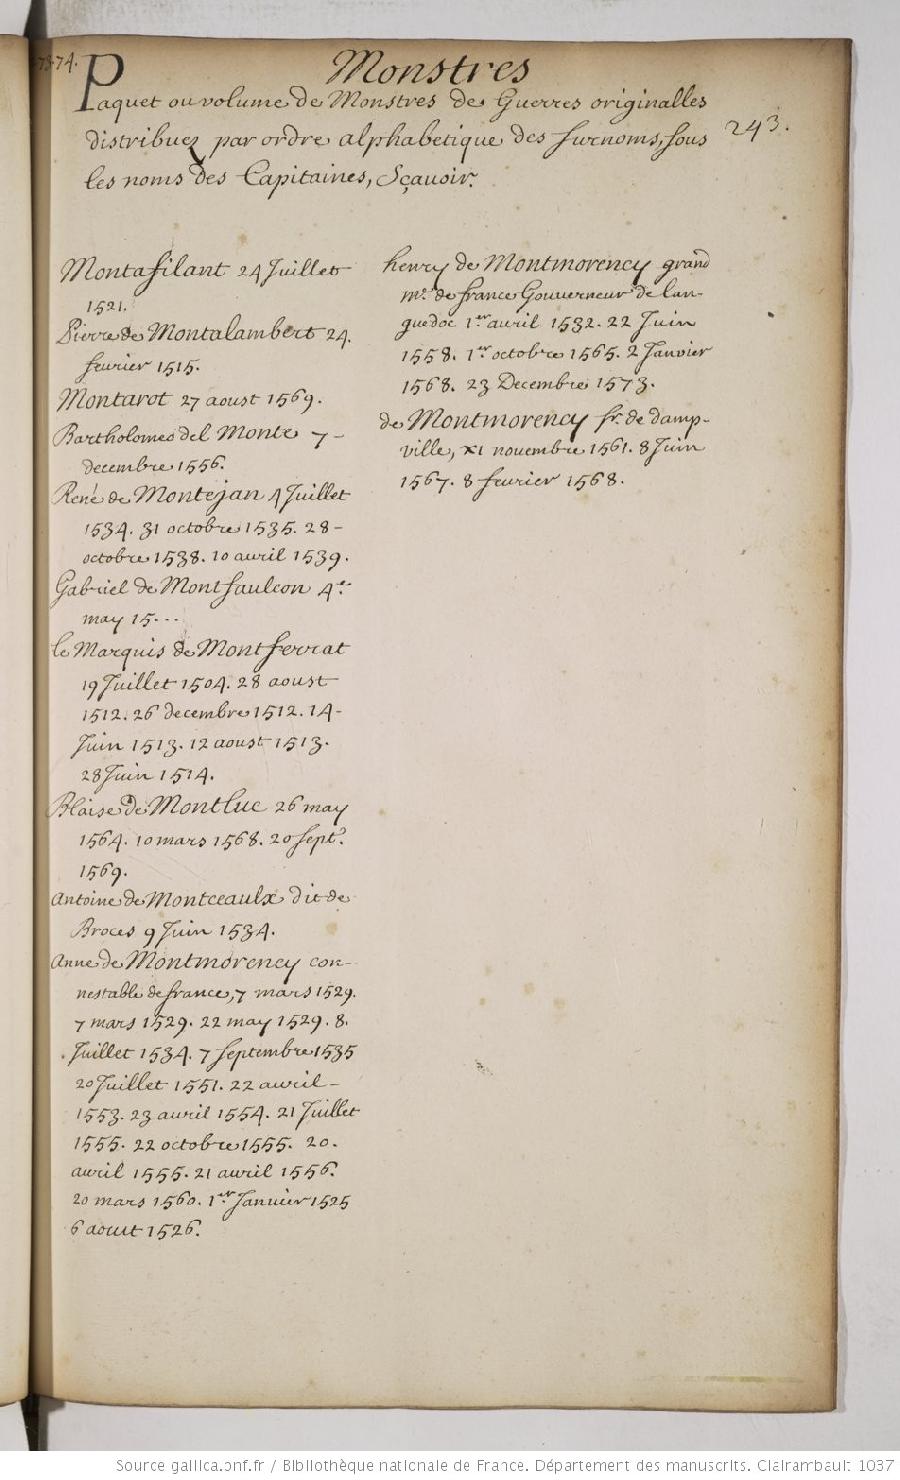 73.74.
Monstres
Paquet ou volume de Monstres de Guerres originalles
distribuez par ordre alphabetique des surnoms, sous
les noms des Capitaines, Sçavoir.
243.
Montafilant 24 Juillet
1521.
Pierre de Montalambert 24.
feurier 1515.
Montarot 27 aoust 1569.
Bartholomeo del Monte 7-
decembre 1556.
René de Montejan 4 Juillet
1534. 31 octobre 1535. 28-
octobre 1538. 10 avril 1539.
Gabriel de Montfaulcon 4e.
may 15...
le Marquis de Montferrat
19 Juillet 1504. 28 aoust
1512. 26 decembre 1512. 14-
Juin 1513. 12 aoust 1513.
28 Juin 1514.
Blaise de Montluc 26 may
1564. 10 mars 1568. 20 septe.
1569.
Antoine de Montceaulx dit de
Broces 9 Juin 1534.
Anne de Montmorency con-
nestable de france, 7 mars 1529.
7 mars 1529. 22 may 1529. 8.
Juillet 1534. 7 septembre 1535
20 Juillet 1551. 22 avril-
1553. 23 avril 1554. 21 Juillet
1555. 22 octobre 1555. 20.
avril 1555. 21 avril 1556.
20 mars 1560. 1er Janvier 1525
6 aoust 1526.
henry de Montmorency grand
me. de france Gouverneur de lan-
guedoc 1er avril 1532. 22 Juin
1558. 1er octobre 1565. 2 Janvier
1568. 23 Decembre 1573.
de Montmorency sr. de damp-
ville, XI novembre 1561. 8 Juin
1567. 8 feurier 1568.
Source gallica.bnf.fr / Bibliothèque nationale de France. Département des manuscrits. Clairambault 1037